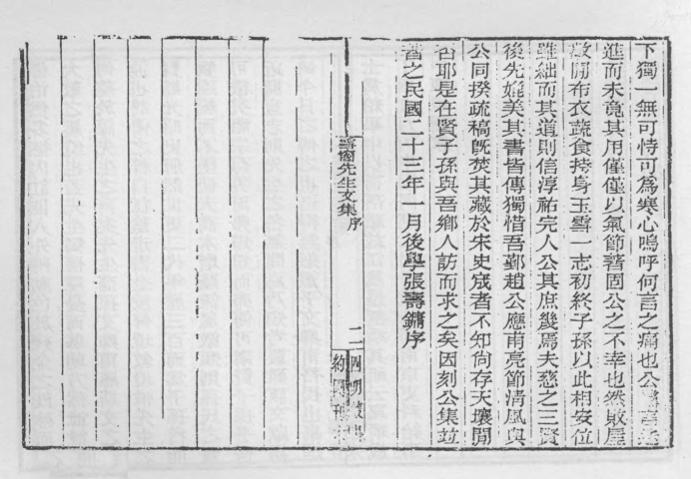 下獨一無可恃可爲寒心嗚呼何言之痛也公
進而未竟其用僅僅以氣節著固公之不幸也然敗屋
敝闈布衣蔬食持身玉雪一志初終子孫以此相安位
雖絀而其道則信淳祐完人公其庶幾焉夫慈之三賢
後先媲美其書皆傳獨惜吾鄞趙公應甫亮節淸風與
公同揆疏稿旣焚其藏於宋史宬者不知尙存天壤閒
否耶是在賢子孫與吾鄕人訪而求之矣因刻公集竝
書之民國二十三年一月後學張壽鏞序
先生文集序
二
四明叢書
約園刊本